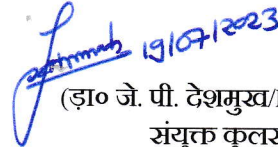 19/07/2023
(ड़ा० जे. पी. देशमुख/
संयुक्त कुलस